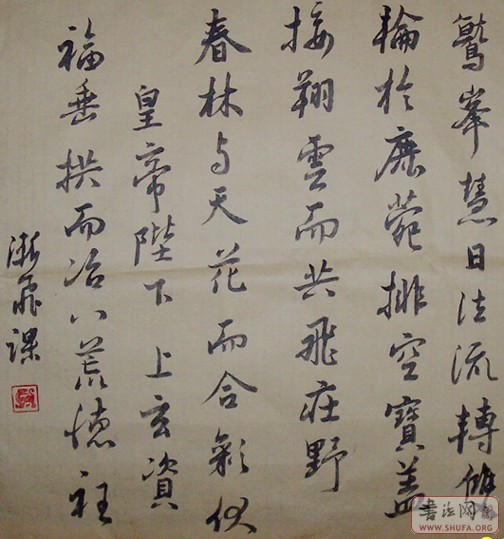 鷲峯慧日法流轉雙
輪於鹿菀排空寶蓋
接翔雲而共飛莊野
春林与天花而合彩伏
皇帝陛下上玄資
福垂拱而治八荒德被
課
书法网
WWW.SHUFA.ORG